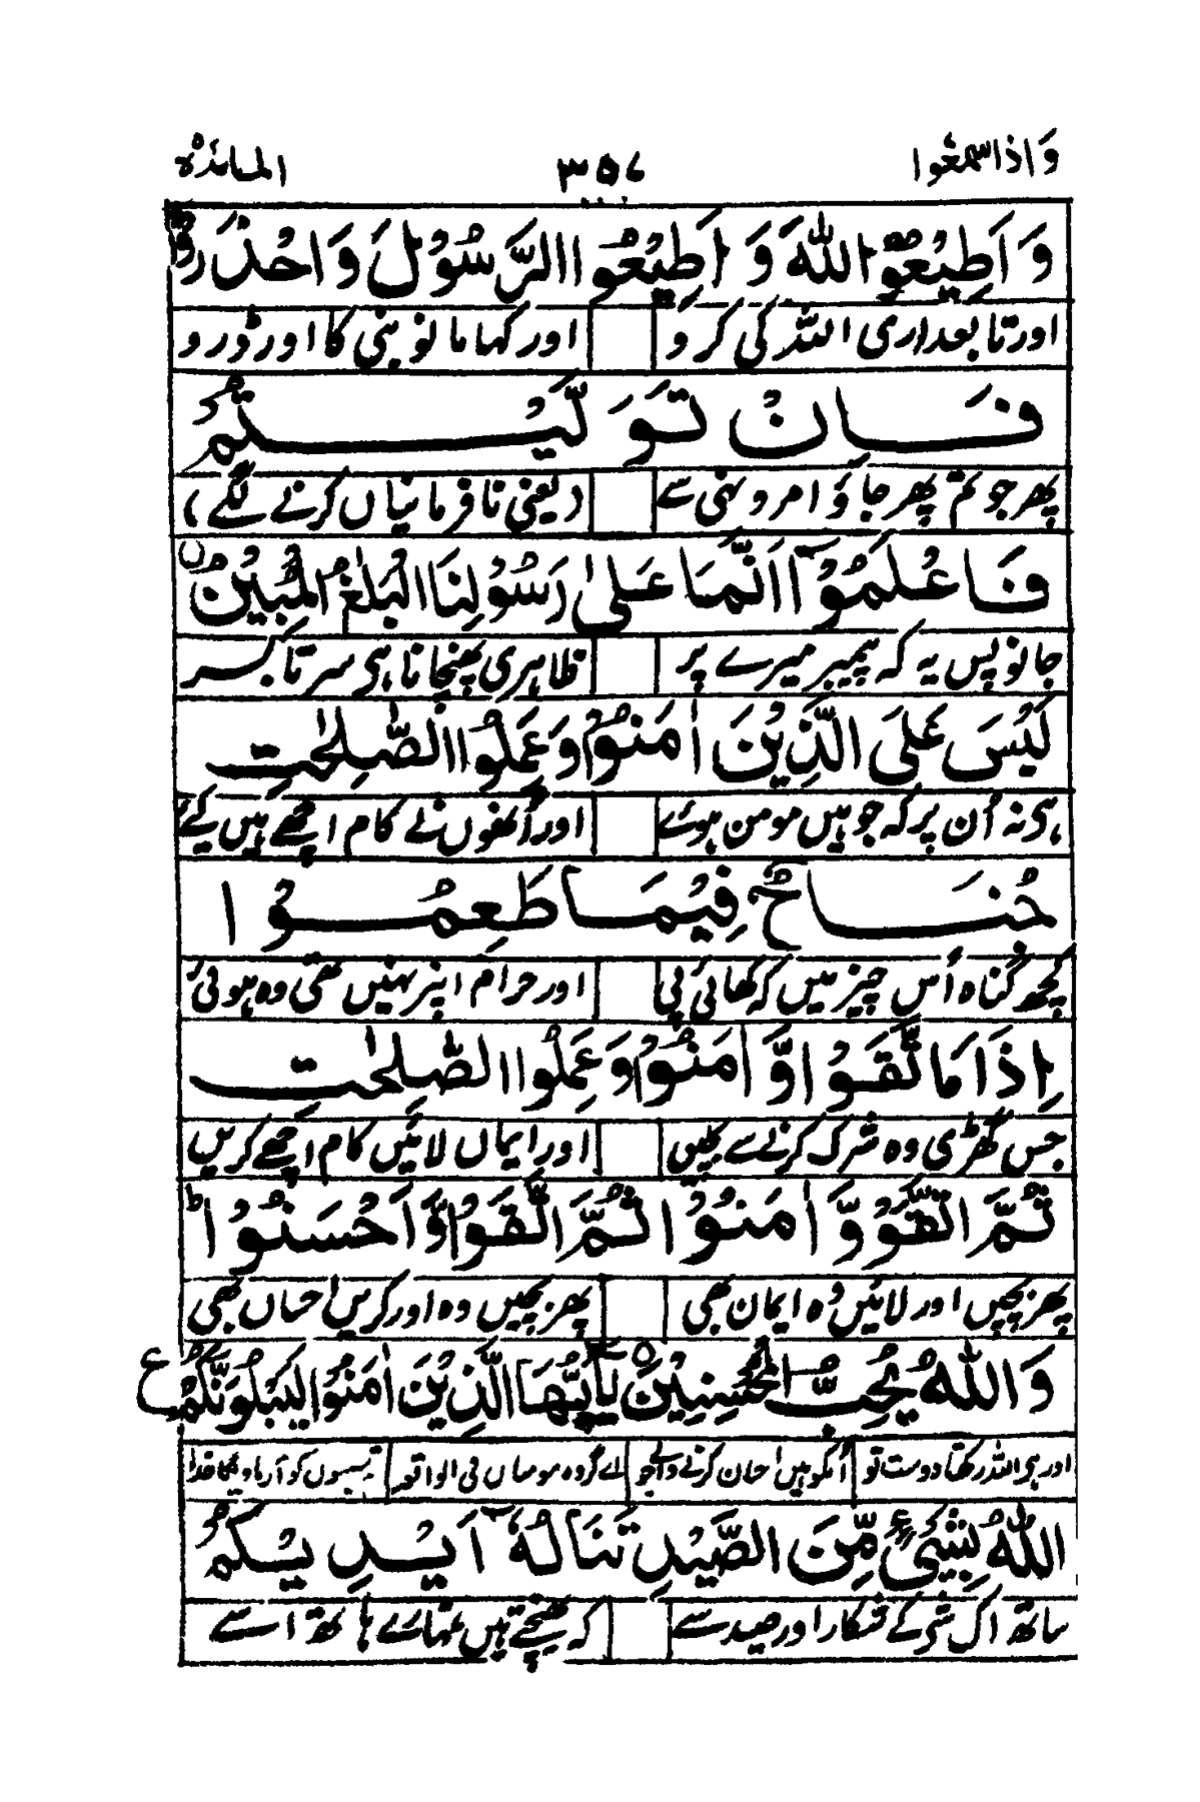 واذاسمعوا ٣٥٧ المائدة ٥
وَاَطِيْعُوا اللّٰهَ وَ اَطِيْعُوا الرَّسُوْلَ وَاحْذَرُوْا
اور تابعداری اللہ کی کرو اور کہا مانو نبی کا اور ڈرو
فَاِنْ تَوَلَّيْتُمْ
پھر جو تم پھر جاؤ امر و نہی سے دیعنی نافرمانیاں کرنے لگے،
فَاعْلَمُوْۤا اَنَّمَا عَلٰى رَسُوْلِنَا الْبَلٰغُ الْمُبِيْنُ
جانو پس یہ کہ پیمبر میرے پر ظاہری پہنچانا ہی سرتا بسر
لَيْسَ عَلَى الَّذِيْنَ اٰمَنُوْا وَعَمِلُوا الصّٰلِحٰتِ
ہی نہ اُن پر کہ جو ہیں مومن ہوئے اور اُنھوں نے کام اچھے ہیں کئے
جُنَاحٌ فِيْمَا طَعِمُوْا
کچھ گناہ اُس چیز میں کہ کھائی پی اور حرام انپر نہیں تھی وہ ہوئی
اِذَا مَا اتَّقَوْا وَّاٰمَنُوْا وَعَمِلُوا الصّٰلِحٰتِ
جس گھڑی وہ شرک کرنے سے بچیں اور ایماں لائیں کام اچھے کریں
ثُمَّ اتَّقَوْا وَّاٰمَنُوْا ثُمَّ اتَّقَوْا وَّاَحْسَنُوْا ط
پھر بچیں اور لائیں وُہ ایمان بھی پھر بچیں وہ اور کریں احساں بھی
وَاللّٰهُ يُحِبُّ الْمُحْسِنِيْنَ يٰۤاَيُّهَا الَّذِيْنَ اٰمَنُوْا لَيَبْلُوَنَّكُمُ ع
اور ہی اللہ رکھتا دوست تو اُنکو ہیں احسان کرنے والے جو اے گروہ مومناں فی الواقعہ کو آزماویگا خدا
اللّٰهُ بِشَيْءٍ مِّنَ الصَّيْدِ تَنَالُهٗۤ اَيْدِيْكُمْ
ساتھ اک شی کے شکار اور صید سے کہ پہنچتے ہیں تمہارے ہاتھ اسے